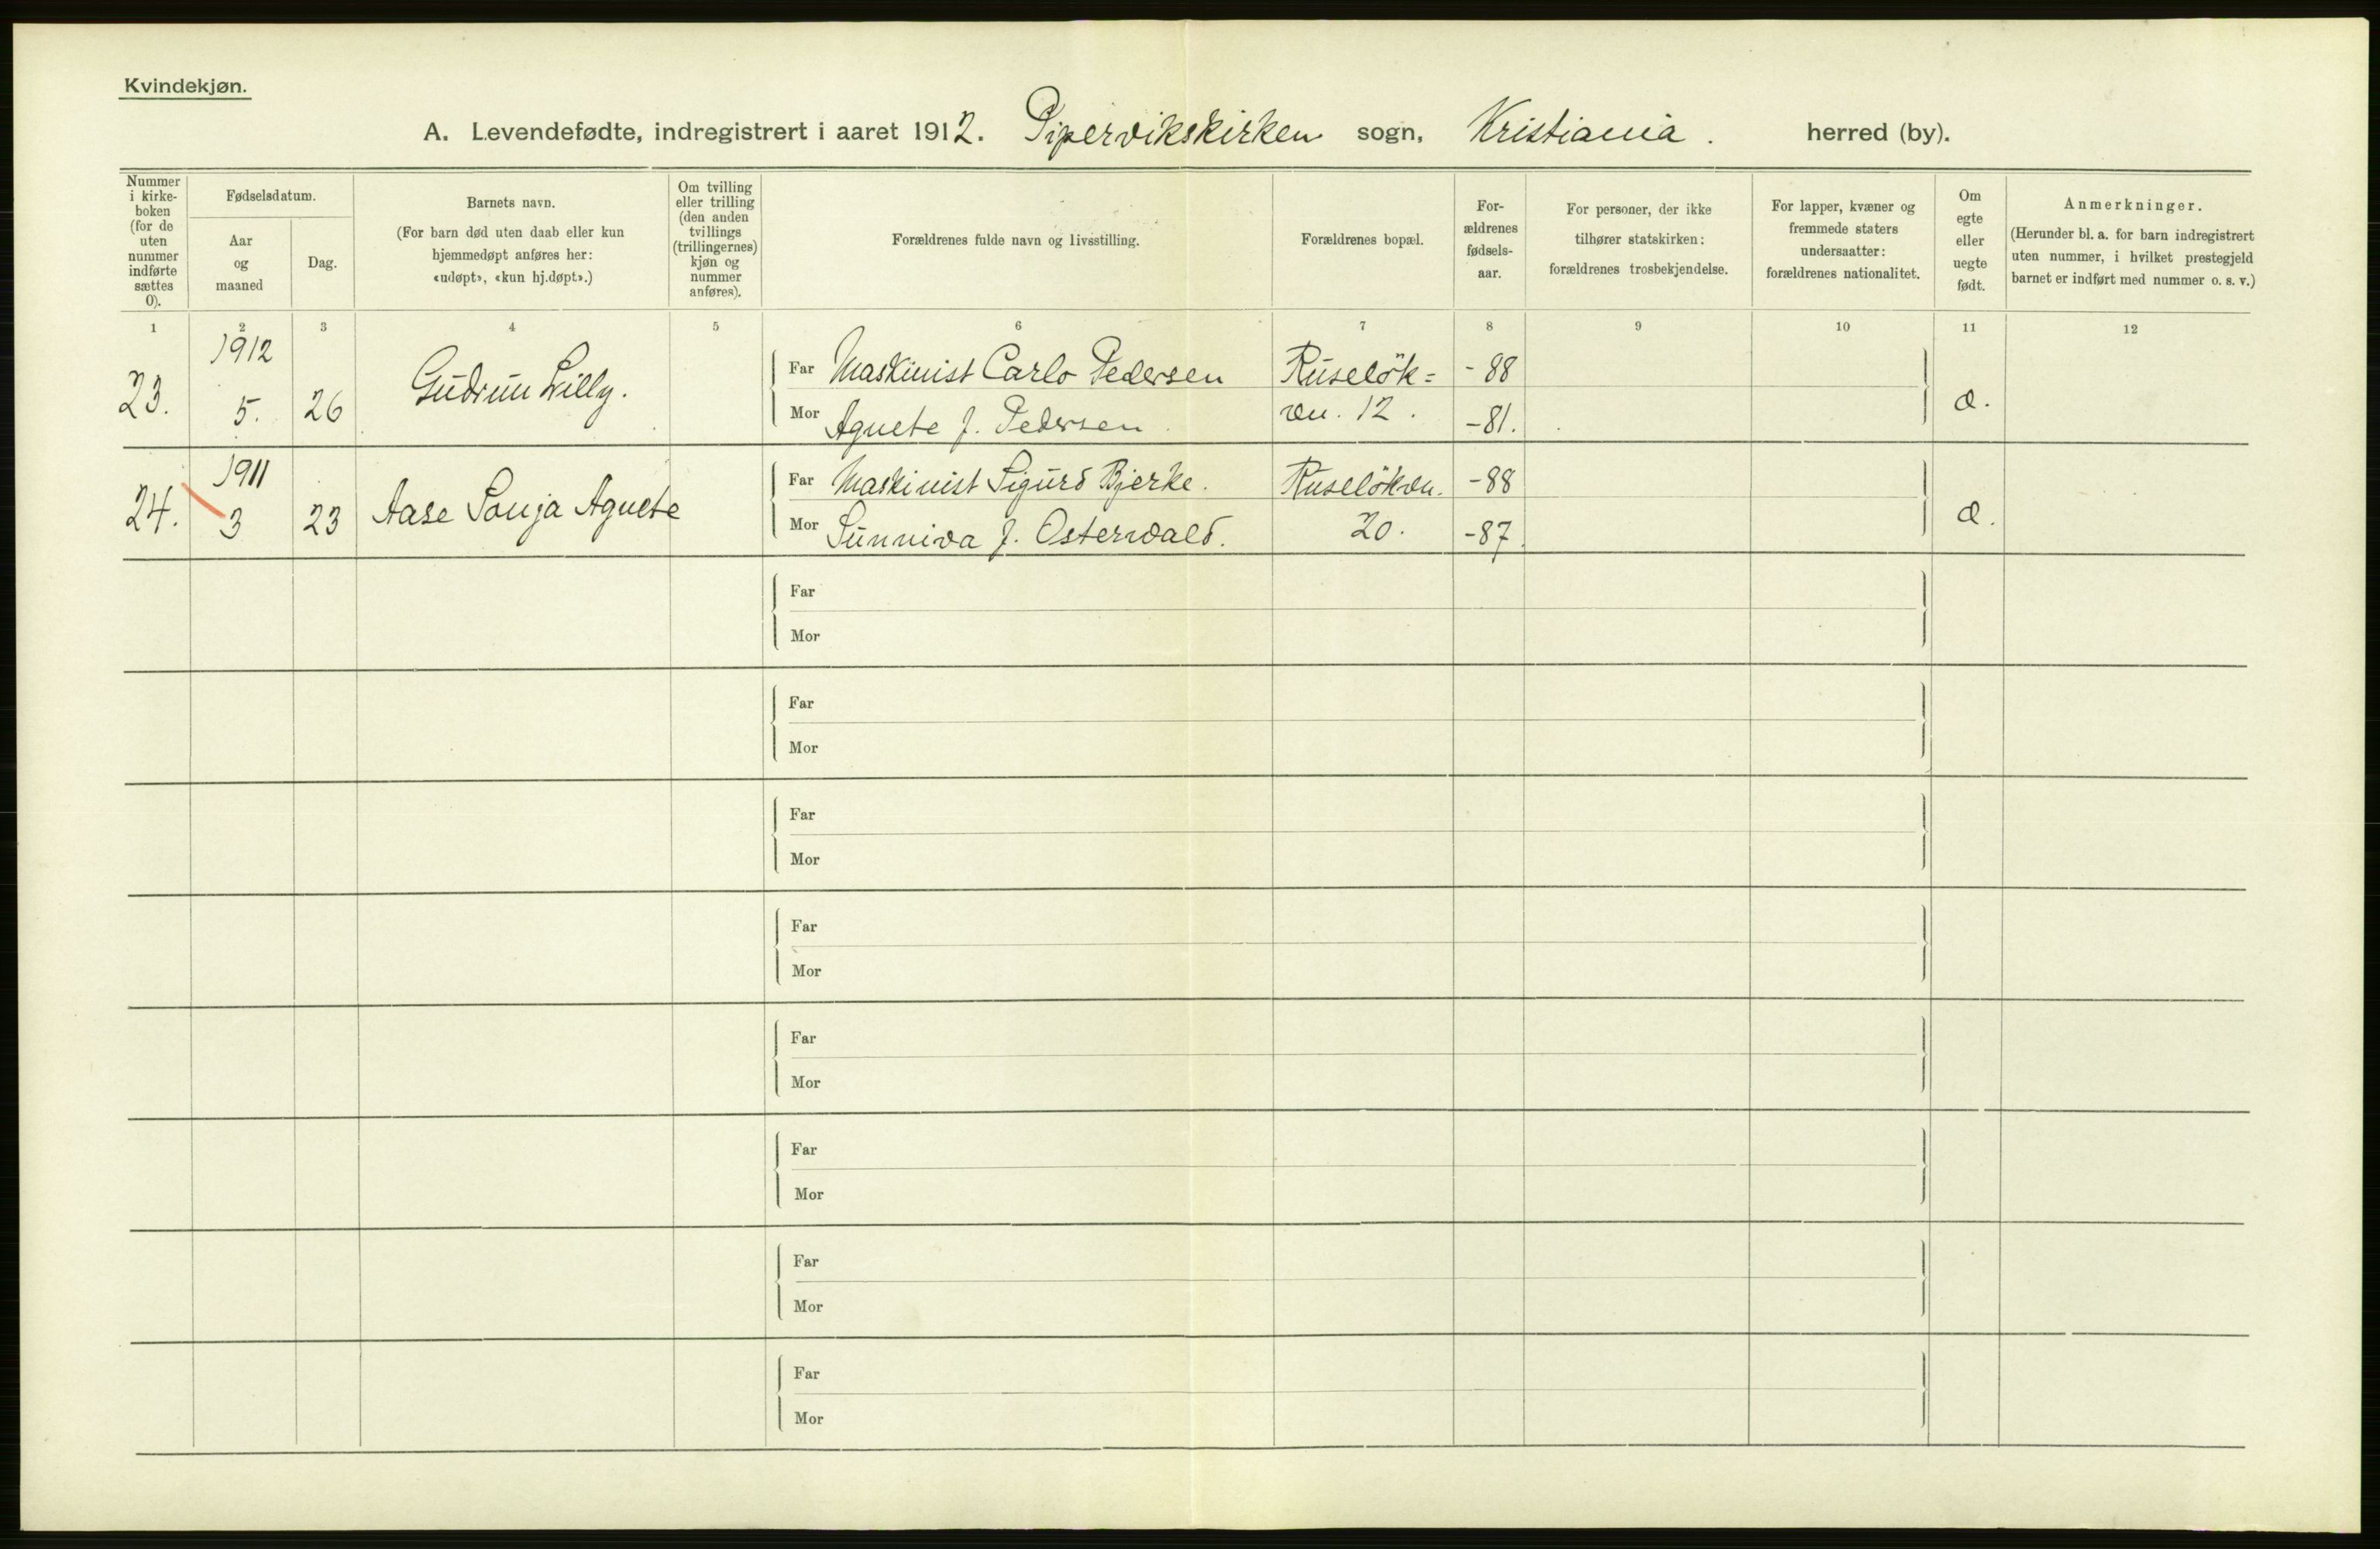 Kvindekjøn.
A. Levendefødte, indregistrert i aaret 1912. Pipervikskirken sogn, Kristiania. herred (by).
Nummer
i kirke-
boken
(for de
uten
nummer
indførte
sættes
0).
Fødselsdatum.
Aar
og
maaned
Dag.
Barnets navn.
(For barn død uten daab eller kun
hjemmedøpt anføres her:
«udøpt», «kun hj.døpt».)
Om tvilling
eller trilling
(den anden
tvillings
(trillingernes)
kjøn og
nummer
anføres).
Forældrenes fulde navn og livsstilling.
Forældrenes bopæl.
For-
ældrenes
fødsels-
aar.
For personer, der ikke
tilhører statskirken:
forældrenes trosbekjendelse.
For lapper, kvæner og
fremmede staters
undersaatter:
forældrenes nationalitet.
Om
egte
eller
uegte
født.
Anmerkninger.
(Herunder bl. a. for barn indregistrert
uten nummer, i hvilket prestegjeld
barnet er indført med nummer o. s. v.)
1 2 3 4 5 6 7 8 9 10 11 12
1912
23. 5. 26 Gudrun Lilly.
Far Maskinist Carlo Pedersen Ruseløk= -88
Mor Agnete f. Pedersen væn. 12. -81.
æ.
1911
24. 3 23 Aase Sonja Agnete
Far Maskinist Sigurd Bjerke. Ruseløkvn. -88
Mor Sunniva f. Osterwald. 20. -87
æ.
Far
Mor
Far
Mor
Far
Mor
Far
Mor
Far
Mor
Far
Mor
Far
Mor
Far
Mor